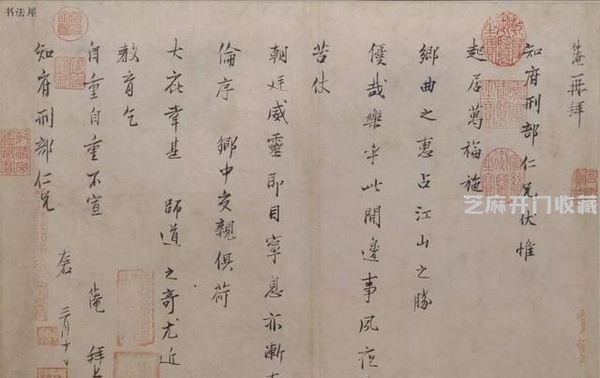 淹再拜
知府刑部仁兄伏惟
起居萬福施
鄉曲之惠占江山之勝
優哉樂乎此間邊事夙夜
苦仗
朝廷威靈即目寧息亦漸
倫序 鄉中交親俱荷
大庇幸甚 師道之奇尤近
教育乞
自重自重不宣 淹 拜上
知府刑部仁兄
三月十
书法屋
芝麻开门收藏